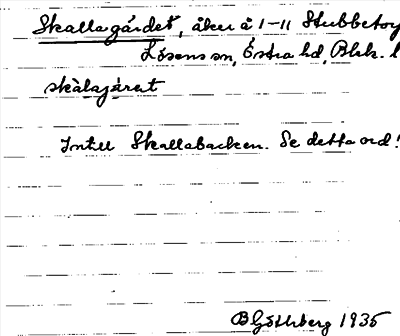 Skallagärdet, åker å 1-11 Stubbetorp
Lösens sn, Östra hd, Blek. l
skàlajárat
Intill Skallabacken. Se detta ord!
B Göthberg 1935